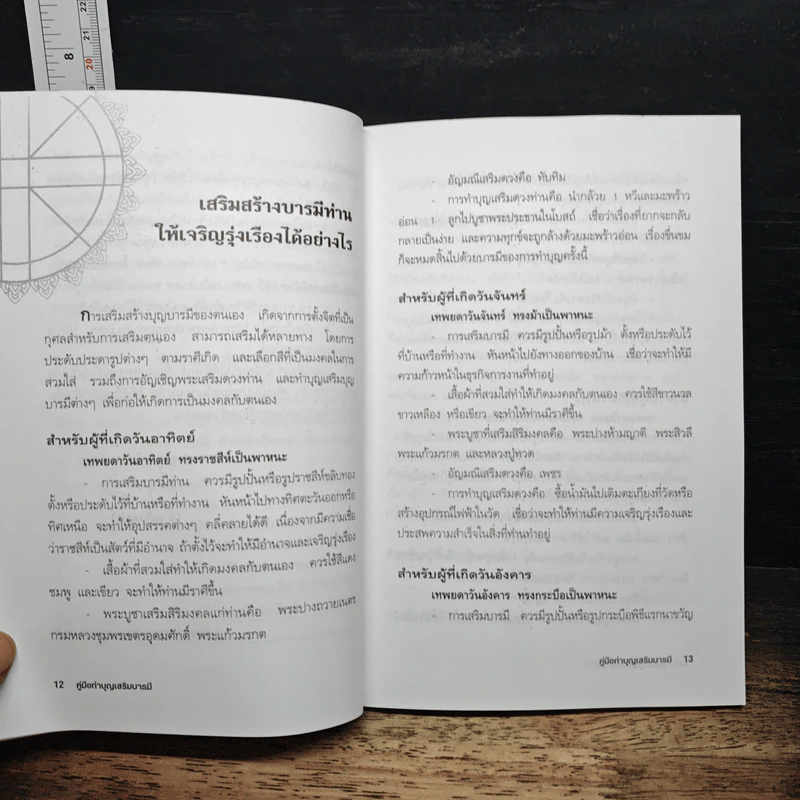 8
22
21
20
เสริมสร้างบารมีท่าน
ให้เจริญรุ่งเรืองได้อย่างไร
การเสริมสร้างบุญบารมีของตนเอง เกิดจากการตั้งจิตที่เป็น
กุศลสำหรับการเสริมตนเอง สามารถเสริมได้หลายทาง โดยการ
ประดับประดารูปต่างๆ ตามราศีเกิด และเลือกสีที่เป็นมงคลในการ
สวมใส่ รวมถึงการอัญเชิญพระเสริมดวงท่าน และทำบุญเสริมบุญ
บารมีต่างๆ เพื่อก่อให้เกิดการเป็นมงคลกับตนเอง
สำหรับผู้ที่เกิดวันอาทิตย์
เทพยดาวันอาทิตย์ ทรงราชสีห์เป็นพาหนะ
- การเสริมบารมีท่าน ควรมีรูปปั้นหรือรูปราชสีห์ขลิบทอง
ตั้งหรือประดับไว้ที่บ้านหรือที่ทำงาน หันหน้าไปทางทิศตะวันออกหรือ
ทิศเหนือ จะทำให้อุปสรรคต่างๆ คลี่คลายได้ดี เนื่องจากมีความเชื่อ
ว่าราชสีห์เป็นสัตว์ที่มีอำนาจ ถ้าตั้งไว้จะทำให้มีอำนาจและเจริญรุ่งเรือง
- เสื้อผ้าที่สวมใส่ทำให้เกิดมงคลกับตนเอง ควรใช้สีแดง
ชมพู และเขียว จะทำให้ท่านมีราศีขึ้น
- พระบูชาเสริมสิริมงคลแก่ท่านคือ พระปางถวายเนตร
กรมหลวงชุมพรเขตรอุดมศักดิ์ พระแก้วมรกต
12 คู่มือทำบุญเสริมบารมี
- อัญมณีเสริมดวงคือ ทับทิม
- การทำบุญเสริมดวงท่านคือ นำกล้วย 1 หวีและมะพร้าว
อ่อน 1 ลูกไปบูชาพระประธานในโบสถ์ เชื่อว่าเรื่องที่ยากจะกลับ
กลายเป็นง่าย และความทุกข์จะถูกล้างด้วยมะพร้าวอ่อน เรื่องขื่นขม
ก็จะหมดสิ้นไปด้วยบารมีของการทำบุญครั้งนี้
สำหรับผู้ที่เกิดวันจันทร์
เทพยดาวันจันทร์ ทรงม้าเป็นพาหนะ
- การเสริมบารมี ควรมีรูปปั้นหรือรูปม้า ตั้งหรือประดับไว้
ที่บ้านหรือที่ทำงาน หันหน้าไปยังทางออกของบ้าน เชื่อว่าจะทำให้มี
ความก้าวหน้าในธุรกิจการงานที่ทำอยู่
- เสื้อผ้าที่สวมใส่ทำให้เกิดมงคลกับตนเอง ควรใช้สีขาวนวล
ขาวเหลือง หรือเขียว จะทำให้ท่านมีราศีขึ้น
- พระบูชาที่เสริมสิริมงคลคือ พระปางห้ามญาติ พระสิวลี
พระแก้วมรกต และหลวงปู่ทวด
- อัญมณีเสริมดวงคือ เพชร
- การทำบุญเสริมดวงคือ ซื้อน้ำมันไปเติมตะเกียงที่วัดหรือ
สร้างอุปกรณ์ไฟฟ้าในวัด เชื่อว่าจะทำให้ท่านมีความเจริญรุ่งเรืองและ
ประสพความสำเร็จในสิ่งที่ท่านทำอยู่
สำหรับผู้ที่เกิดวันอังคาร
เทพยดาวันอังคาร ทรงกระบือเป็นพาหนะ
- การเสริมบารมี ควรมีรูปปั้นหรือรูปกระบือพิธีแรกนาขวัญ
คู่มือทำบุญเสริมบารมี 13